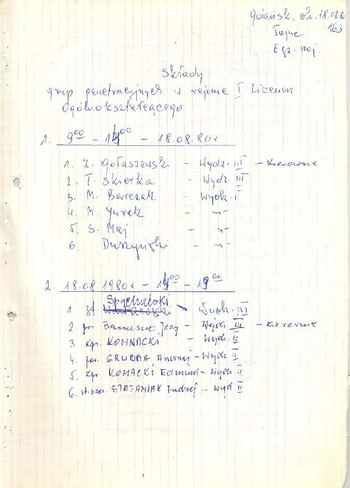 Gdańsk, dn. 18.08.80
Tajne
Egz. poj
Składy
grup penetracyjnych w rejonie I Liceum
Ogólnokształcącego
1. 9⁰⁰ - 14⁰⁰ - 18.08.80r
1. Z. Gołaszewski - Wydz. III - Kierownik
2. T. Skierka - Wydz. II
3. M. Barczak - Wydz. II
4. Jurek - "-
5. S. Maj - "-
6. Duszyński - "-
2. 18.08.1980r - 14⁰⁰ - 19⁰⁰
1 st. Spychalski - Wydz.
2 por. Jerzy - Wydz. III - Kierownik
3 kpr. KOMNACKI - Wydz. II
4. por. GRUDBA Andrzej - Wydz II
5. kpr. KOMACKI Edmund - Wydz II
6. st. szer. STEFANIAK Andrzej - Wydz II